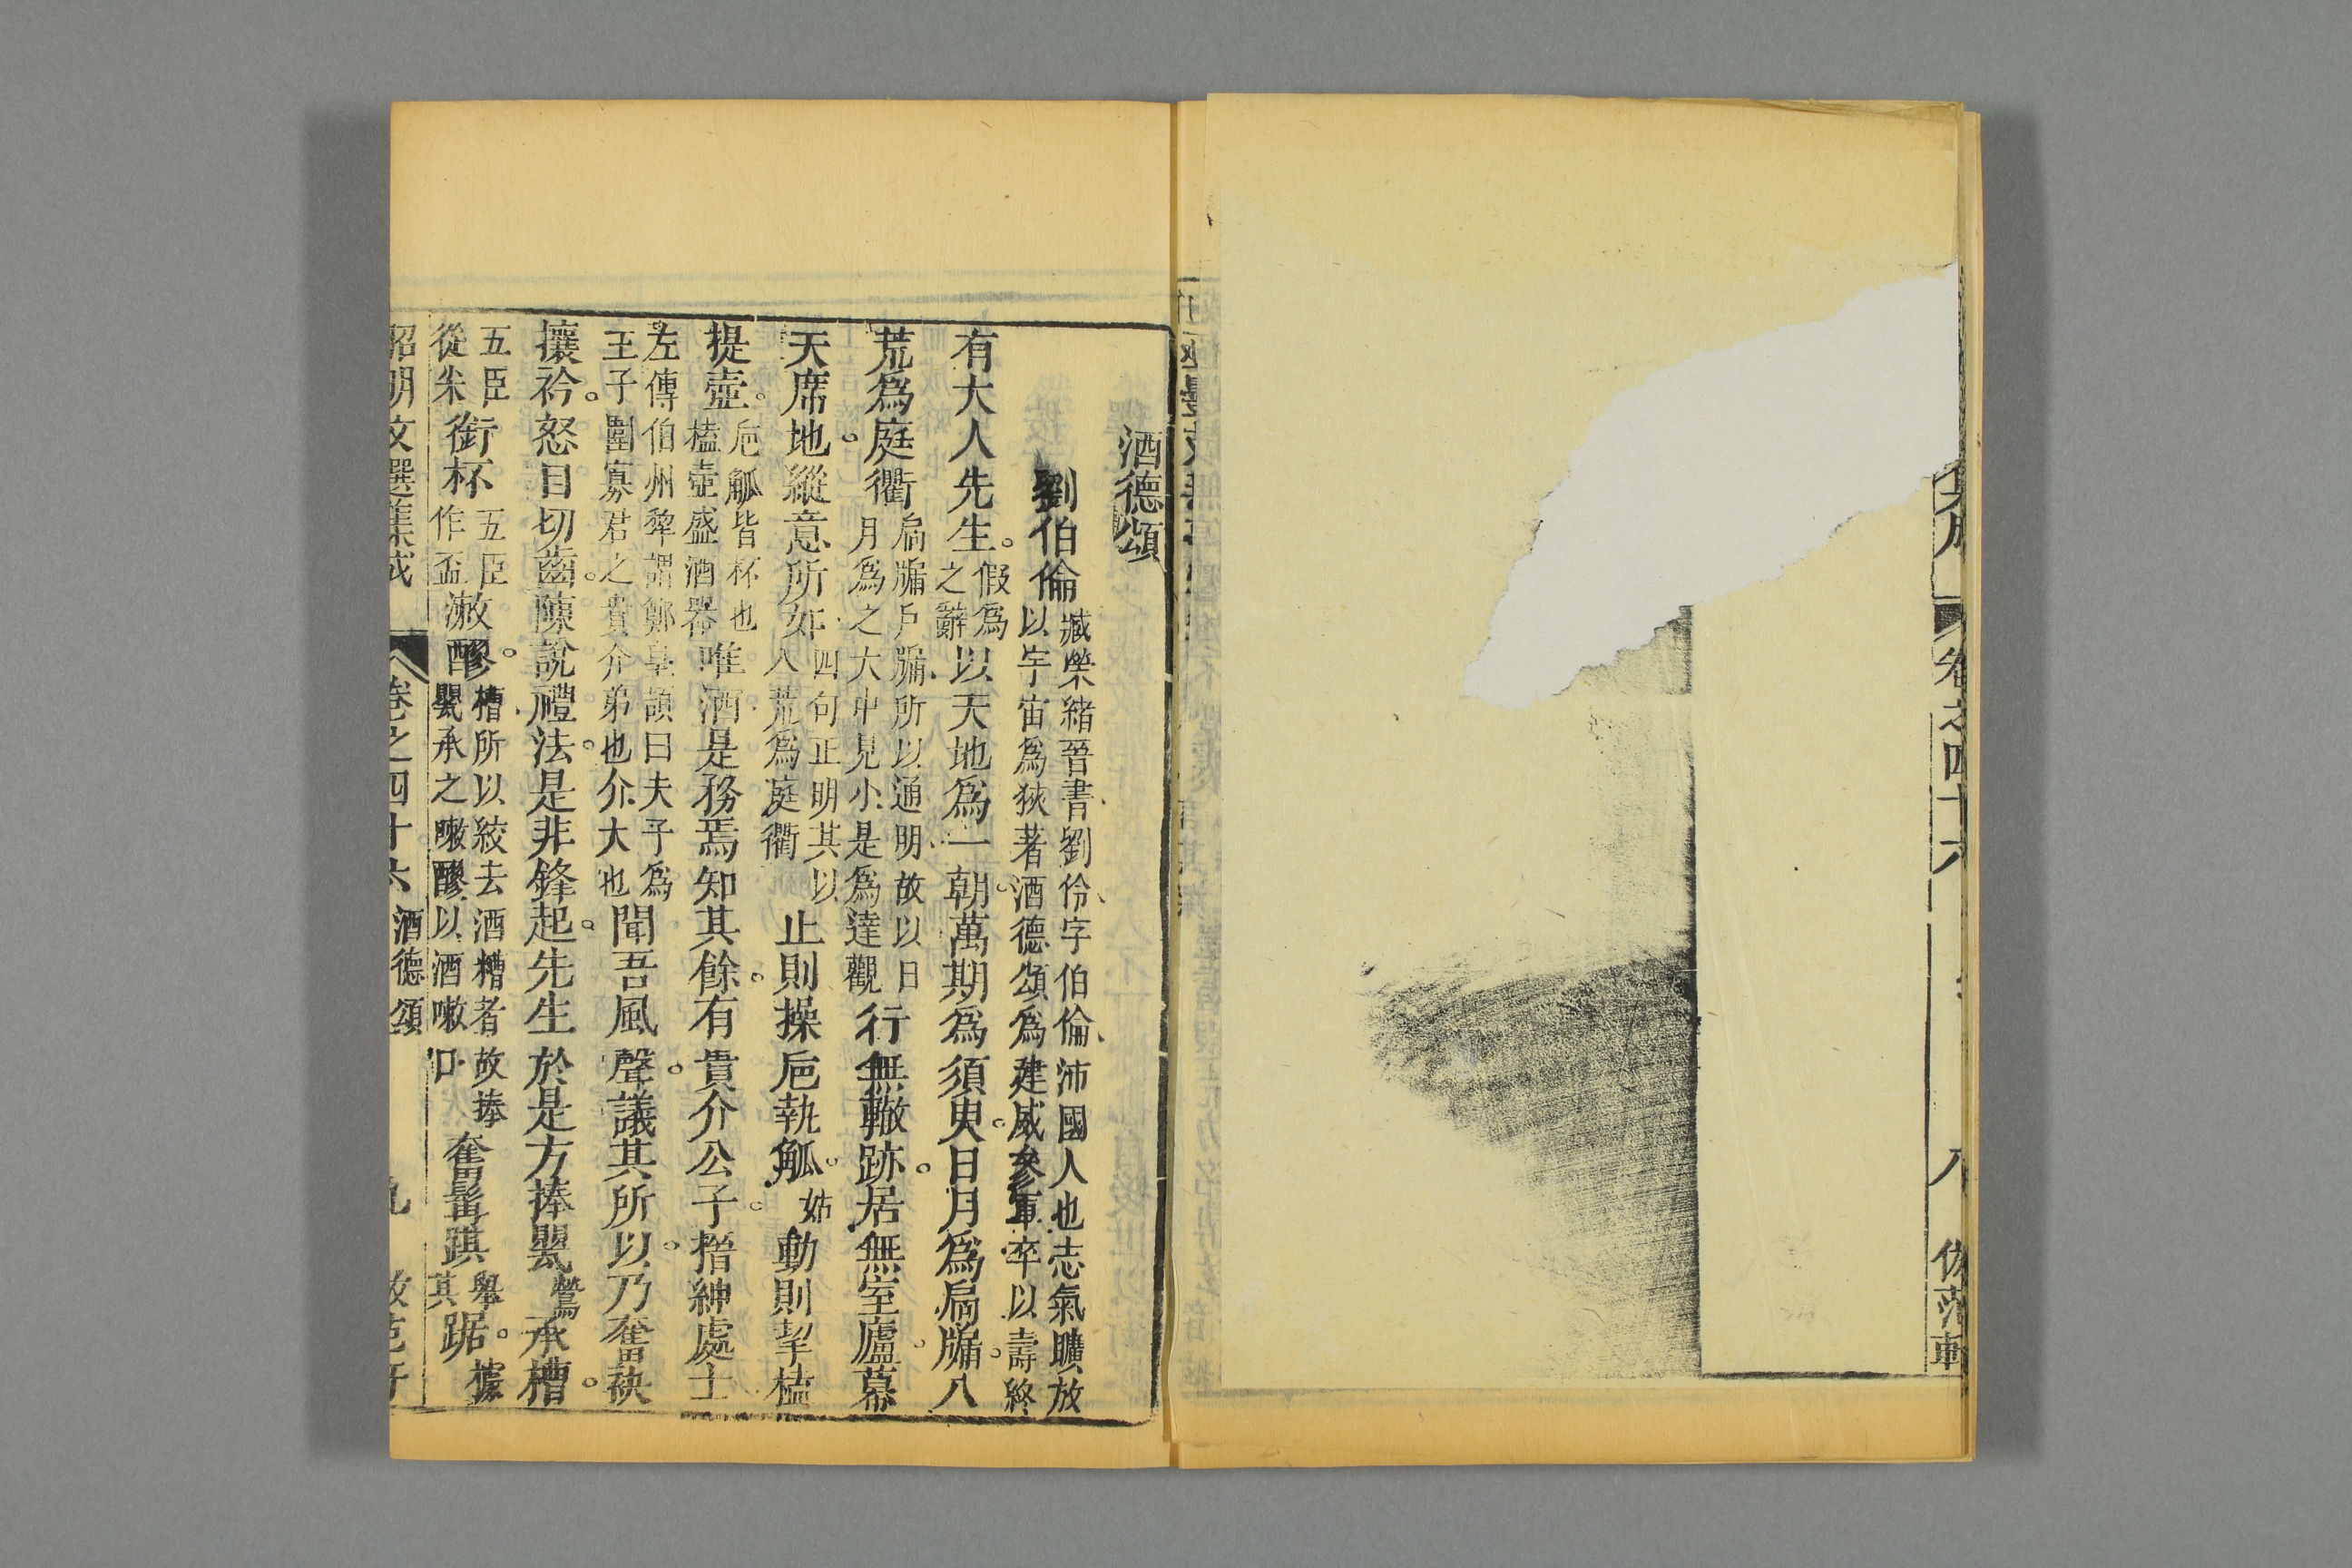 卷之四十六
八
酒德頌
劉伯倫臧榮緒晉書劉伶字伯倫沛國人也志氣曠放以宇宙為狹著酒德頌為建威參軍卒以壽終
有大人先生。假為之辭以天地為一朝。萬期為須臾。日月為扃牖。八
荒為庭衢扃牖戶牖所以通明故以日月為之大中見小是為達觀行無轍跡。居無室廬。幕
天席地。縱意所如四句正明其以八荒為庭衢止則操巵執觚。姑動則挈榼
提壺。巵觚皆杯也榼壺盛酒器唯酒是務焉知其餘。有貴介公子。搢紳處士
左傳伯州犂謂鄭皇頡曰夫子為王子圍寡君之貴介弟也介大也聞吾風聲。議其所以。乃奮袂
攘衿。怒目切齒。陳說禮法。是非鋒起。先生於是方捧甖鶯承槽。
五臣從米銜杯五臣作盃漱醪。槽所以絞去酒糟者故捧甖承之嗽醪以酒嗽口奮髯踑舉其踞。據
昭明文選集成
卷之四十六
酒德頌
九